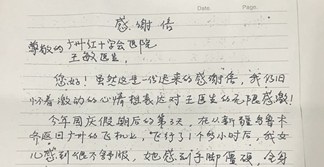 Date. Page.
感谢信
尊敬的广州红十字会医院
王敏医生:
您好!虽然这是一份迟来的感谢信,我仍旧
怀着激动的心情想表达对王医生的无限感激!
今年国庆假期后的第3天,在从新疆乌鲁木
齐返回广州的飞机上,飞行了1个多小时后,我女
儿感到很不舒服,她感到手脚僵硬,